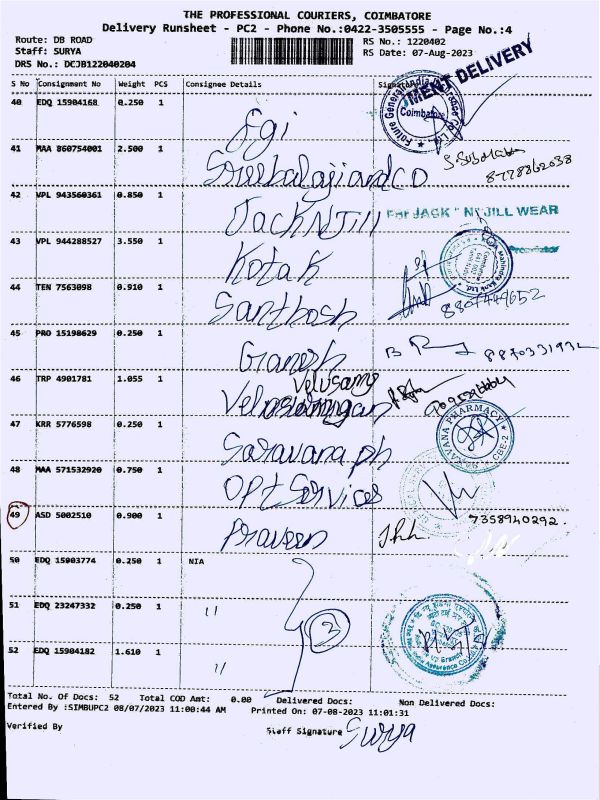 THE PROFESSIONAL COURIERS, COIMBATORE
Delivery Runsheet - PC2 - Phone No.:0422-3505555 - Page No.:4
Route: DB ROAD RS No.: 1220402
Staff: SURYA RS Date: 07-Aug-2023
DRS No.: DCJB122040204
MENT DELIVERY
S No Consignment No Weight PCS Consignee Details Signature
40 EDQ 15904168 0.250 1 Fgi
Future General India
Coimbatore
41 MAA 860754001 2.500 1 Sreebalajiandco
8778862038
42 VPL 943560361 0.850 1 Jack N Jill
For JACK " N" JILL WEAR
Proprietor
43 VPL 944288527 3.550 1 Kotak
44 TEN 7563098 0.910 1 Santhosh
8807449652
45 PRO 15198629 0.250 1 Ganesh
8870331932
46 TRP 4901781 1.055 1 Velusamy
47 KRR 5776598 0.250 1 Saravana ph
PHARMACY
CBE-2
48 MAA 571532920 0.750 1 OPT Services
49 ASD 5002510 0.900 1 Praveen
7358940292.
50 EDQ 15903774 0.250 1 NIA
51 EDQ 23247332 0.250 1 "
3
52 EDQ 15904182 1.610 1 "
Total No. Of Docs: 52 Total COD Amt: 0.00 Delivered Docs: Non Delivered Docs:
Entered By :SIMBUPC2 08/07/2023 11:00:44 AM Printed On: 07-08-2023 11:01:31
Verified By Staff Signature Surya